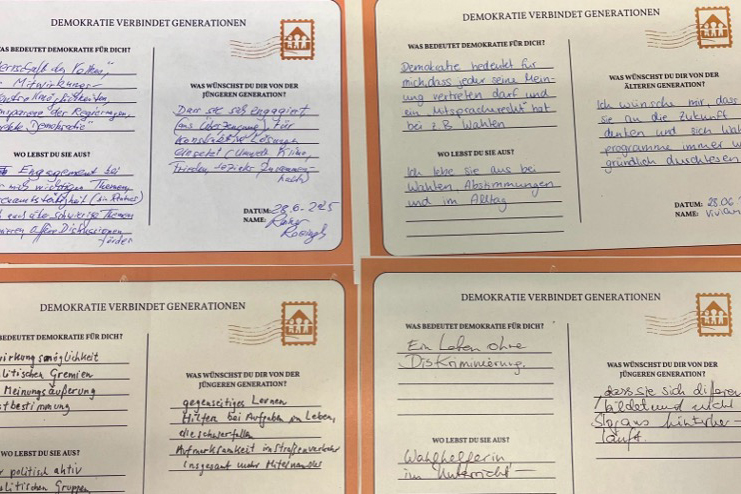 DEMOKRATIE VERBINDET GENERATIONEN
WAS BEDEUTET DEMOKRATIE FÜR DICH?
Mitwirkung-
Transparenz der Regierungen,
Demokratie"
WO LEBST DU SIE AUS?
Engagement bei
mich wichtigen Themen
schwierige Themen
offene Diskussionen
fördern
WAS WÜNSCHST DU DIR VON DER
JÜNGEREN GENERATION?
Dass sie sich engagiert
(aus Überzeugung) für
konstruktive Lösungen
einsetzt (Umwelt, Klima,
Frieden, sozialer Zusammen-
halt)
DATUM: 28.6.2025
NAME:
DEMOKRATIE VERBINDET GENERATIONEN
WAS BEDEUTET DEMOKRATIE FÜR DICH?
Demokratie bedeutet für
mich, dass jeder seine Mein-
ung vertreten darf und
ein „Mitspracherecht" hat
bei z.B. Wahlen
WO LEBST DU SIE AUS?
Ich lebe sie aus bei
Wahlen, Abstimmungen
und im Alltag
WAS WÜNSCHST DU DIR VON DER
ÄLTEREN GENERATION?
Ich wünsche mir, dass
sie an die Zukunft
denken und sich Wahl
programme immer
gründlich durchlesen
DATUM: 28.06
NAME: Vivian
DEMOKRATIE VERBINDET GENERATIONEN
WAS BEDEUTET DEMOKRATIE FÜR DICH?
wirkungsmöglichkeit
olitischen Gremien
Meinungsäußerung
stbestimmung
WO LEBST DU SIE AUS?
r politisch aktiv
olitischen Gruppen
WAS WÜNSCHST DU DIR VON DER
JÜNGEREN GENERATION?
gegenseitiges Lernen
Hilfen bei Aufgaben im Leben,
die schwerfallen
Aufmerksamkeit im Straßenverkehr
insgesamt mehr Miteinander
DEMOKRATIE VERBINDET GENERATIONEN
WAS BEDEUTET DEMOKRATIE FÜR DICH?
Ein Leben ohne
Diskriminierung.
WO LEBST DU SIE AUS?
Wahlhelferin
im Unterricht —
WAS WÜNSCHST DU DIR VON DER
JÜNGEREN GENERATION?
, dass sie sich differen
bildet und nicht
Slogans hinterher-
läuft.